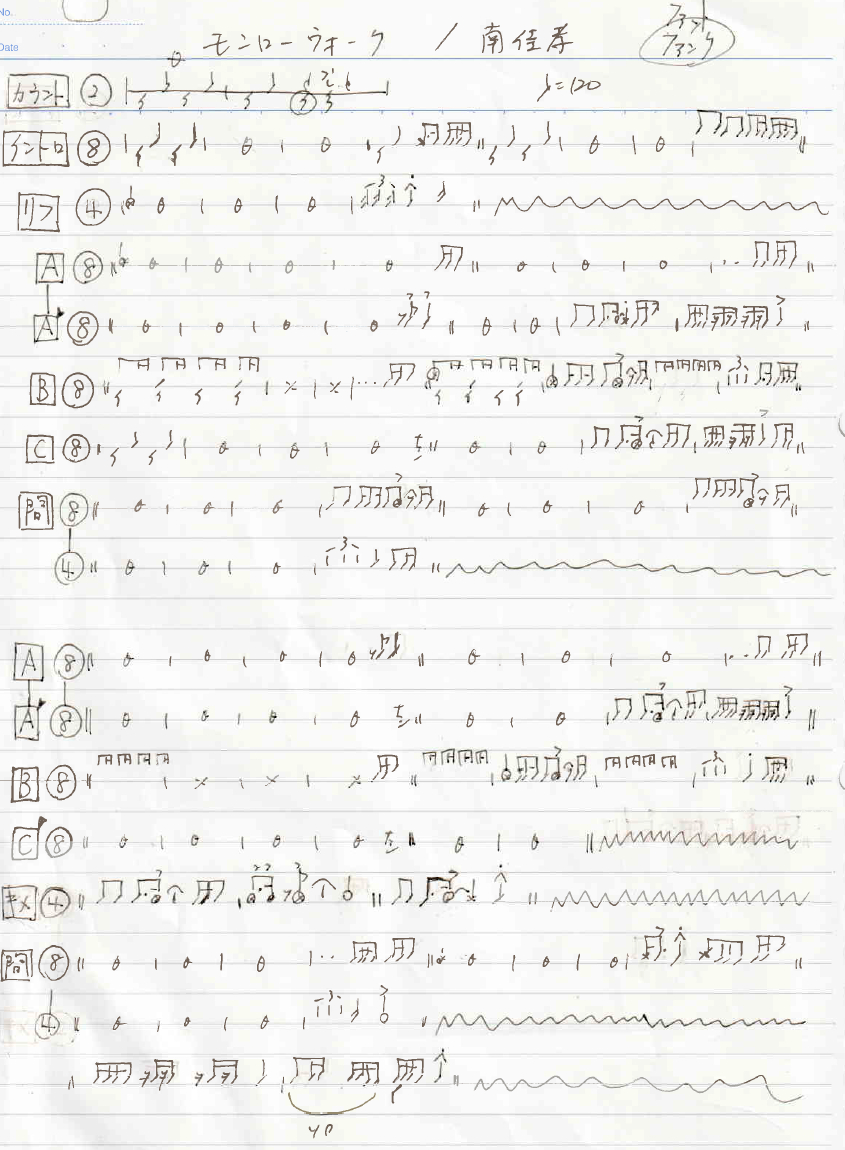 No.
Date
モンローウォーク / 南佳孝
ファンク
カウント ② ♩=120
イントロ ⑧
リフ ④
A ⑧
A' ⑧
B ⑧
C ⑧
間 ⑧
④
A ⑧
A' ⑧
B ⑧
C' ⑧
キメ ④
間 ⑧
④